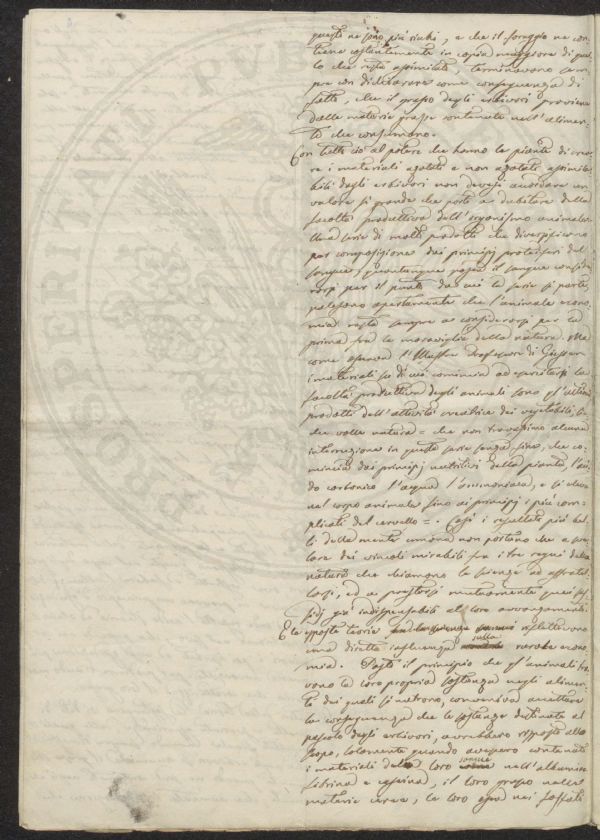 queste ne sono più ricchi, e che il foraggio ne con-
tiene costantemente in copia maggiore di quel-
lo che resta assimilato, terminavano sem-
pre con dichiarare come conseguenza di
fatto, che il grasso degli erbivori proviene
dalle materie grasse contenute nell'alimen-
to che consumano.
Con tutto ciò al potere che hanno le piante di crea-
re i materiali azotati e non azotati assimila-
bili dagli erbivori non devesi accordare un
valore sì grande che porti a dubitare della
facoltà produttiva dell'organismo animale.
Una serie di molti prodotti che diversificano
per composizione dai principj proteici del
sangue, quantunque possa il sangue conside-
rarsi per il punto da cui la serie si parte,
palesano apertamente che l'animale econo-
mia resta sempre a considerarsi per la
prima fra le maraviglie della natura. Ma
come osserva l'Illustre Professore di Giessen
i materiali su di cui comincia ad esercitarsi la
facoltà produttiva degli animali sono gl'ultimi
prodotti dell'attività creatrice dei vegetabili, la
che volle natura = che non trovassimo alcuna
interruzione in questa serie senza fine, che co-
mincia dai principj nutritivi della pianta, l'aci-
do carbonico l'acqua l'ammoniaca, e si eleva
nel corpo animale fino ai principj i più com-
plicati del cervello =. Così i resultati più bel-
li della mente umana non portano che a sve-
lare dei vincoli mirabili fra i tre regni della
natura che chiamano le scienze ad affratel-
larsi, ed a prestarsi mutuamente quei sus-
sidj già indispensabili al loro avanzamento.
E le esposte teorie riflettevano
una diretta influenza sulla rurale econo-
mia. Posto il principio che gl'animali tro-
vano la loro propria sostanza negli alimen-
ti dai quali si nutrono, conveniva accettare
la conseguenza che le sostanze destinate al
pascolo degli erbivori, avrebbero risposto allo
scopo, solamente quando avessero contenuti
i materiali del loro sangue nell'albumina
fibrina e caseina, il loro grasso nelle
materie ceree, le loro ossa nei fosfati